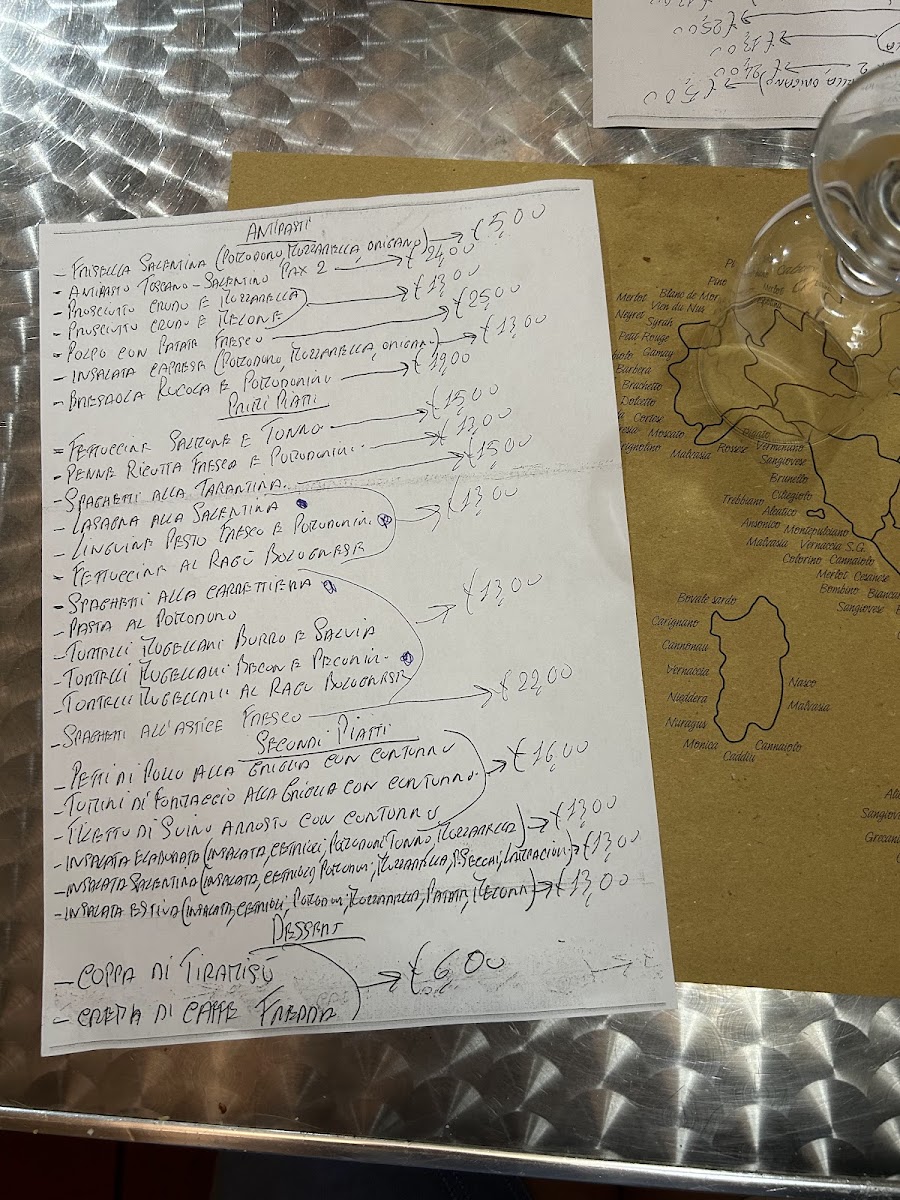 ANTIPASTI
- FRISELLA SALENTINA (POMODORO, MOZZARELLA, ORIGANO) → € 5,00
- ANTIPASTO TOSCANO-SALENTINO PAX 2 → € 24,00
- PROSCIUTTO CRUDO E MOZZARELLA
- PROSCIUTTO CRUDO E MELONE → € 13,00
- POLPO CON PATATE FRESCO → € 25,00
- INSALATA CAPRESE (POMODORO, MOZZARELLA, ORIGANO) → € 13,00
- BRESAOLA RUCOLA E POMODORINI → € 19,00
PRIMI PIATTI
- FETTUCCINE SALMONE E TONNO → € 15,00
- PENNE RICOTTA FRESCA E POMODORINI → € 13,00
- SPAGHETTI ALLA TARANTINA → € 15,00
- LASAGNA ALLA SALENTINA
- LINGUINE PESTO FRESCO E POMODORINI → € 13,00
- FETTUCCINE AL RAGÙ BOLOGNESE
- SPAGHETTI ALLA CARRETTIERA
- PASTA AL POMODORO → € 13,00
- TORTELLI MUGELLANI BURRO E SALVIA
- TORTELLI MUGELLANI BECON E PECORINO
- TORTELLI MUGELLANI AL RAGÙ BOLOGNESE
- SPAGHETTI ALL'ASTICE FRESCO → € 22,00
SECONDI PIATTI
- PETTI DI POLLO ALLA GRIGLIA CON CONTORNO
- TOMINI DI FORMAGGIO ALLA GRIGLIA CON CONTORNO → € 16,00
- FILETTO DI SUINO ARROSTO CON CONTORNO
- INSALATA ELABORATA (INSALATA, CETRIOLI, POMODORI TONNO, MOZZARELLA) → € 13,00
- INSALATA SALENTINA (INSALATA, CETRIOLI, POMODORI, MOZZARELLA, P. SECCHI, LAMPACIONI) → € 13,00
- INSALATA ESTIVA (INSALATA, CETRIOLI, POMODORI, MOZZARELLA, PATATE, MELONE) → € 13,00
DESSERT
- COPPA DI TIRAMISÙ → € 6,00
- CREMA DI CAFFE FREDDA
Merlot Blanc de Mor
Neyret Vien du Nus
Syrah
Petit Rouge
Gamay
Barbera
Brachetto
Dolcetto
Cortese
Moscato
Malvasia Rossese Vermentino
Sangiovese
Brunello
Trebbiano Ciliegiolo
Aleatico
Ansonico Montepulciano
Malvasia Vernaccia S.G.
Colorino Cannaiolo
Merlot Cesanese
Bombino
Sangiovese
Bovale sardo
Carignano
Cannonau
Vernaccia
Nieddera
Nuragus
Monica
Caddiu
Cannaiolo
Malvasia
Nasco